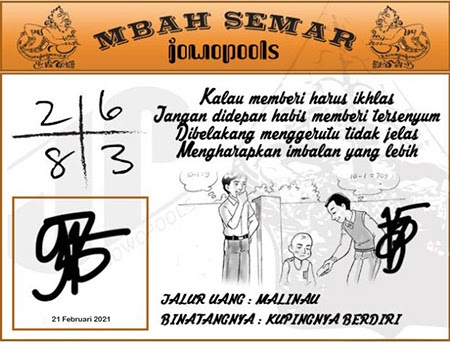 MBAH SEMAR
jowopools
2 6
8 3
Kalau memberi harus ikhlas
Jangan didepan habis memberi tersenyum
Dibelakang menggerutu tidak jelas
Mengharapkan imbalan yang lebih
21 Februari 2021
JALUR UANG : MALINAU
BINATANGNYA : KUPINGNYA BERDIRI